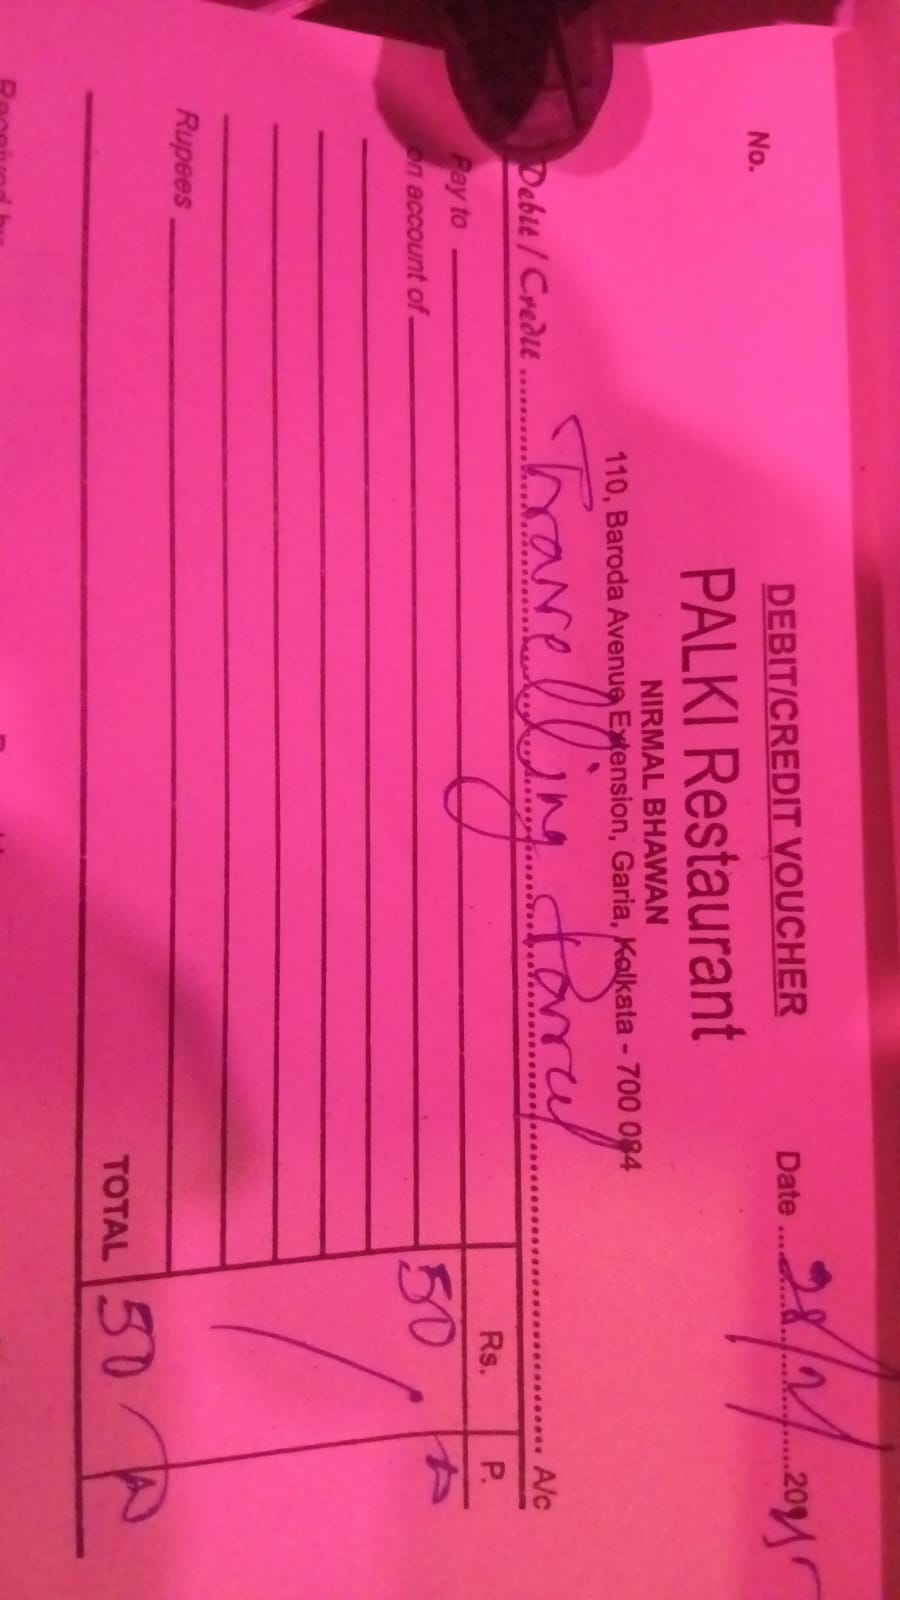 DEBIT/CREDIT VOUCHER
No.
Date
PALKI Restaurant
NIRMAL BHAWAN
110, Baroda Avenue Extension, Garia, Kolkata - 700 084
Debit / Credit Travelling Parcel A/c
Rs. P.
Pay to
on account of 50
Rupees
TOTAL 50
Received by